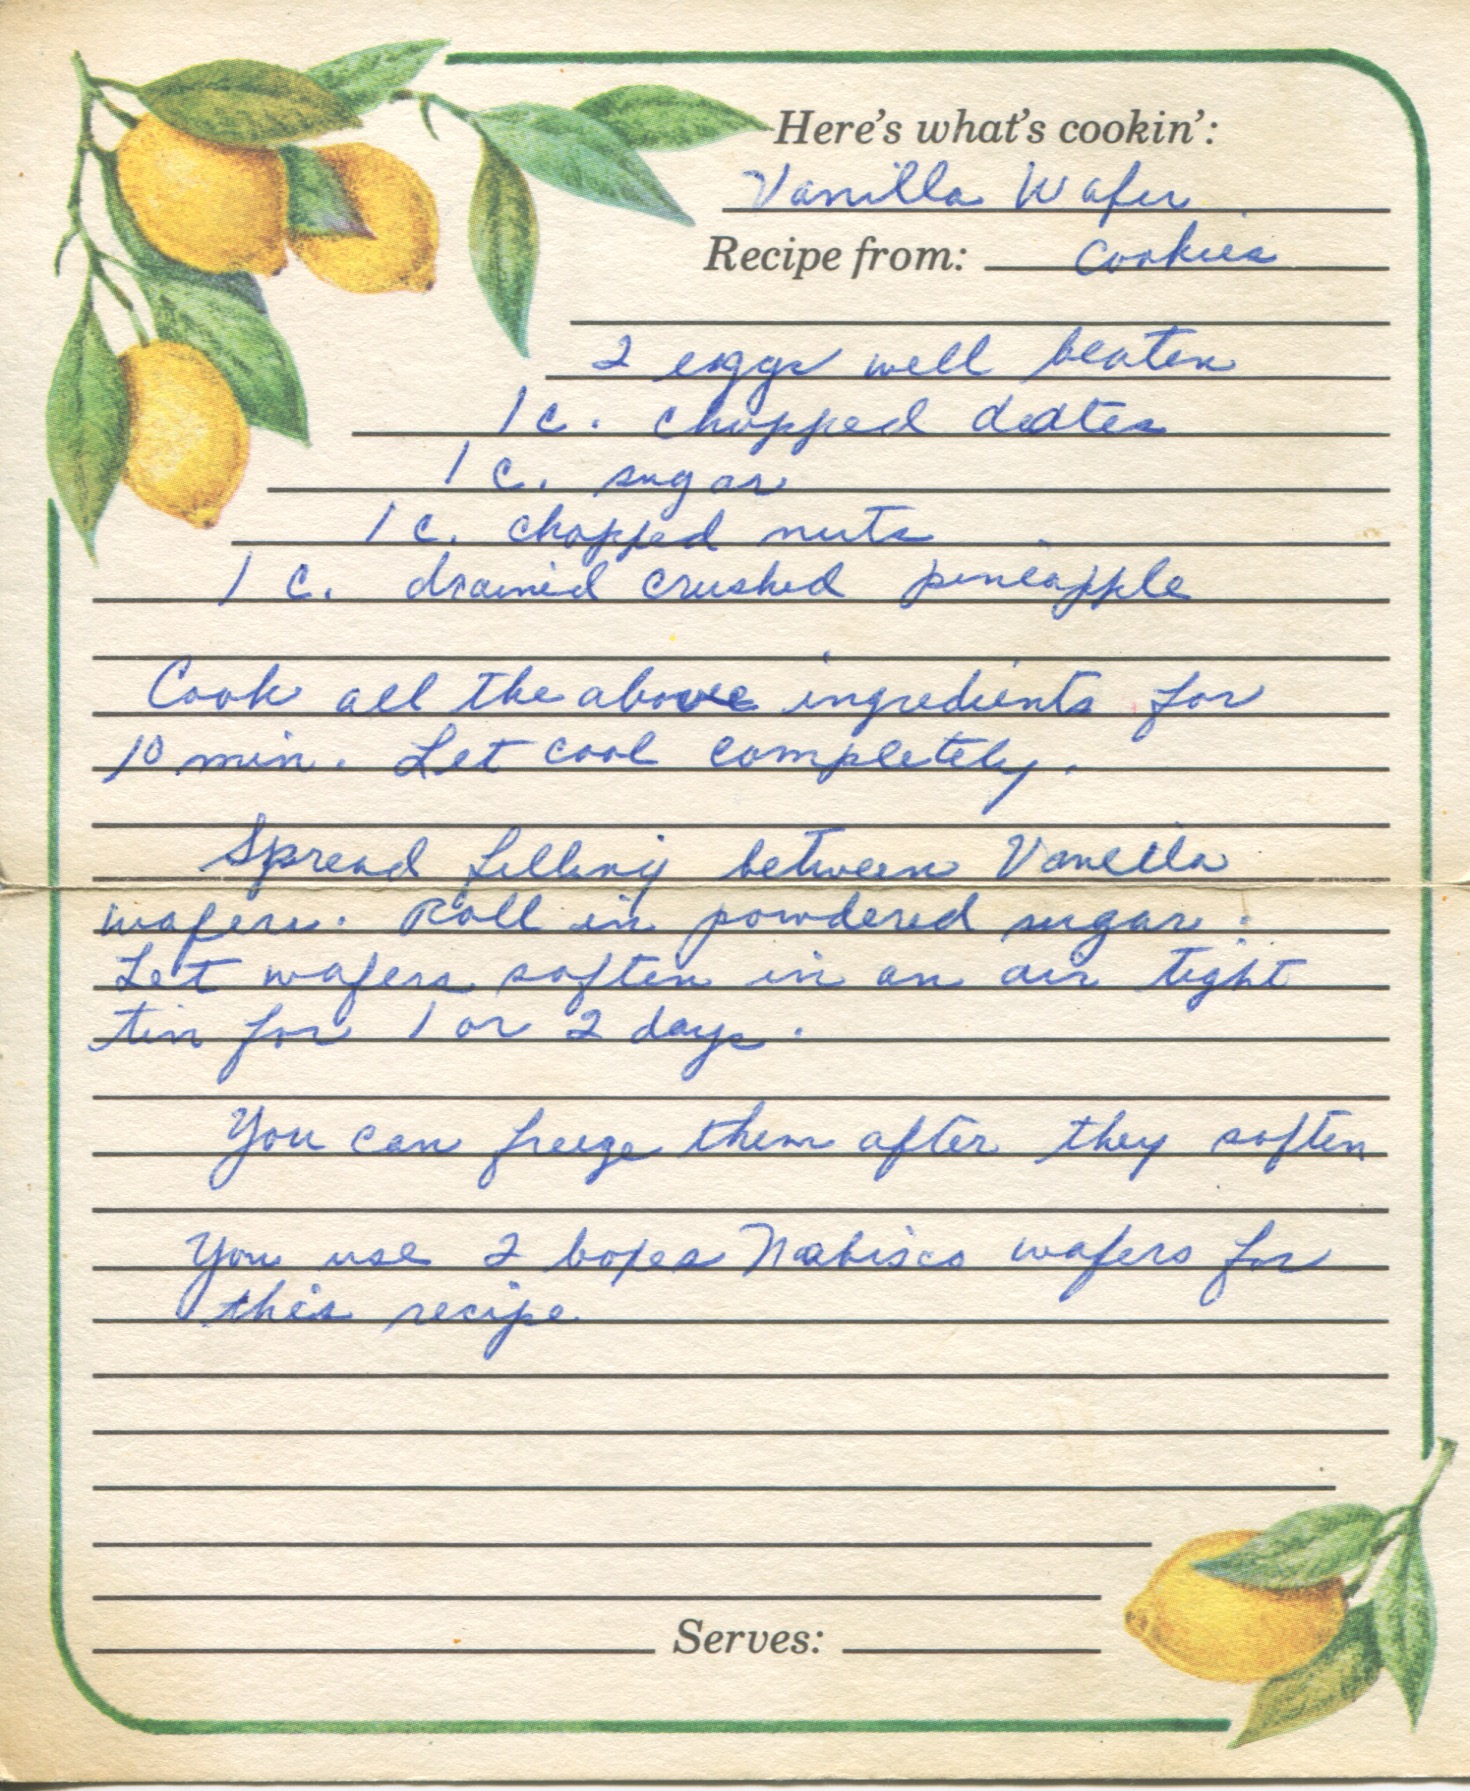 Here's what's cookin':
Vanilla Wafer
Recipe from: Cookies
2 eggs well beaten
1 c. chopped dates
1 c. sugar
1 c. chopped nuts
1 c. drained crushed pineapple
Cook all the above ingredients for
10 min. Let cool completely.
Spread filling between Vanilla
wafers. Roll in powdered sugar.
Let wafers soften in an air tight
tin for 1 or 2 days.
You can freeze them after they soften
You use 2 boxes Nabisco wafers for
this recipe.
Serves: